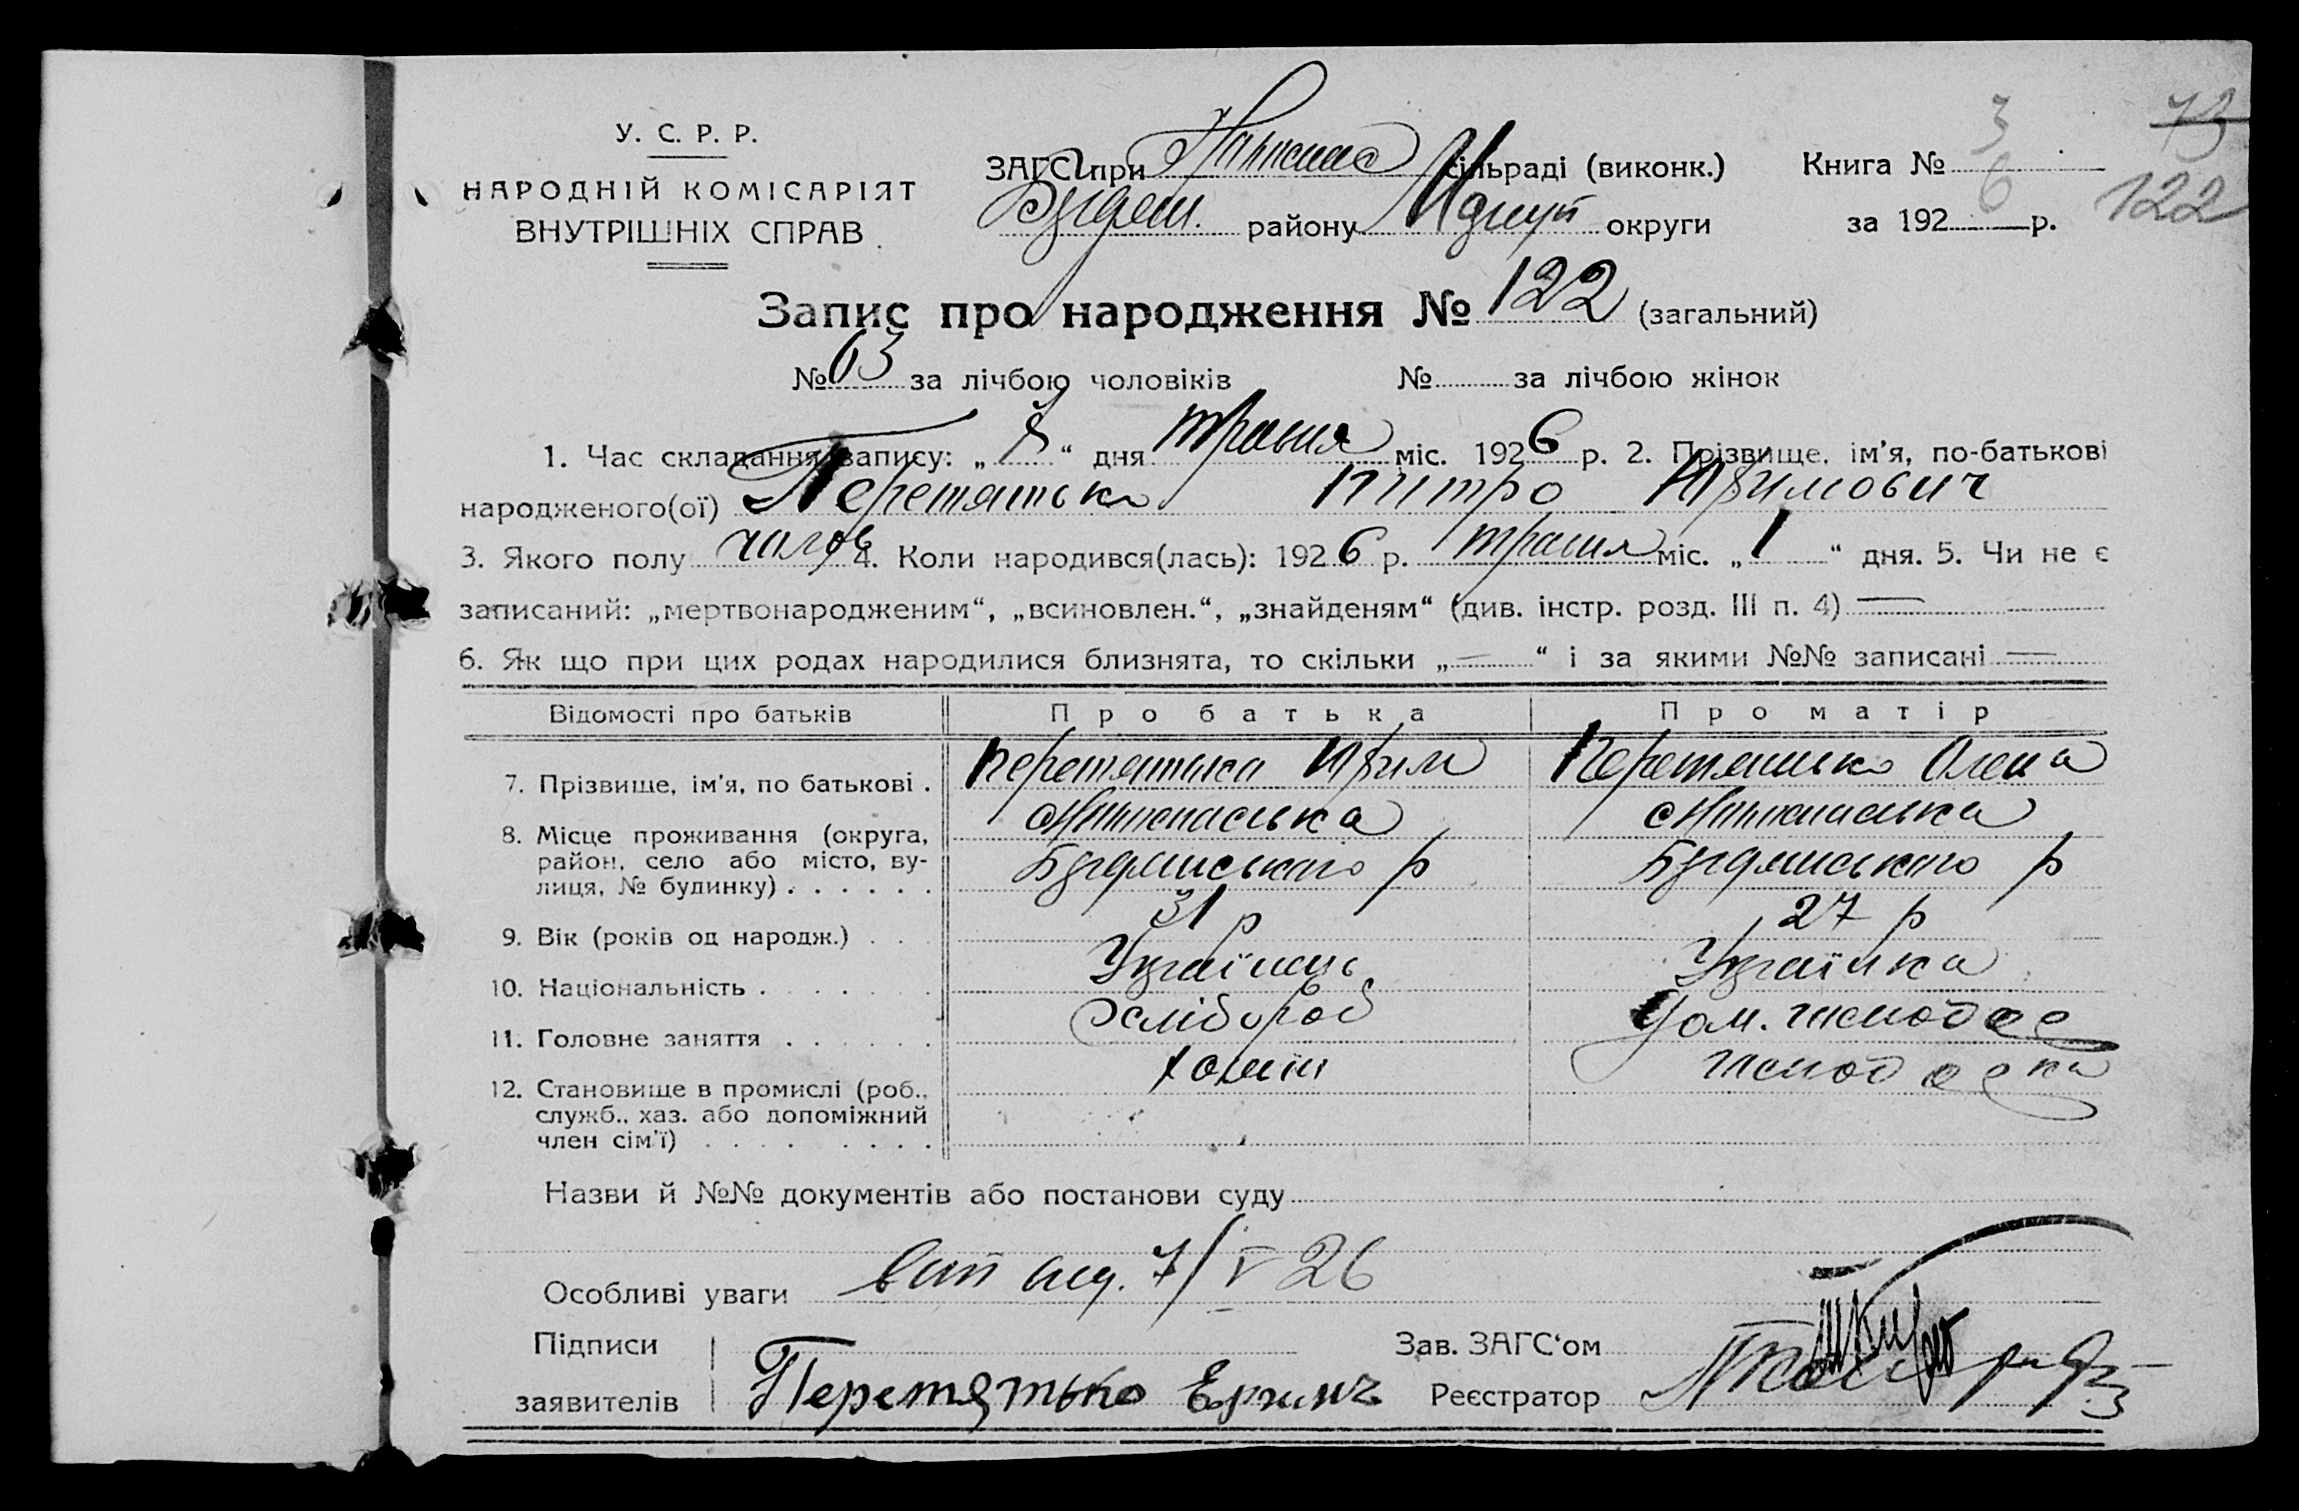 У. С. Р. Р.
НАРОДНІЙ КОМІСАРІЯТ
ВНУТРІШНІХ СПРАВ
ЗАГС при сільраді (виконк.)
району округи
Книга № 3
за 192 6 р.
73
122
Запис про народження № 122 (загальний)
№ 63 за лічбою чоловіків № за лічбою жінок
1. Час складання запису: „ 8 “ дня травня міс. 1926 р. 2. Прізвище, ім'я, по-батькові
народженого(ої) Перетятько Питро Юхимович
3. Якого полу чолов 4. Коли народився(лась): 1926 р. травня міс. „ 1 “ дня. 5. Чи не є
записаний: „мертвонародженим“, „всиновлен.“, „знайденям“ (див. інстр. розд. III п. 4) —
6. Як що при цих родах народилися близнята, то скільки „ — “ і за якими №№ записані —
Відомості про батьків Про батька Про матір
7. Прізвище, ім'я, по батькові . Перетятько Юхим Перетятько Олена
8. Місце проживання (округа,
район, село або місто, ву-
лиця, № будинку) . . . . . .
9. Вік (років од народж.) . . . 31 р 27 р
10. Національність . . . . . Українець Українка
11. Головне заняття . . . . . . Хлібороб Дом. господар
12. Становище в промислі (роб.,
служб., хаз. або допоміжний
член сім'ї) . . . . . . . .
Назви й №№ документів або постанови суду
Особливі уваги 7/V 26
Підписи
заявителів Перетятько
Зав. ЗАГС'ом
Реєстратор